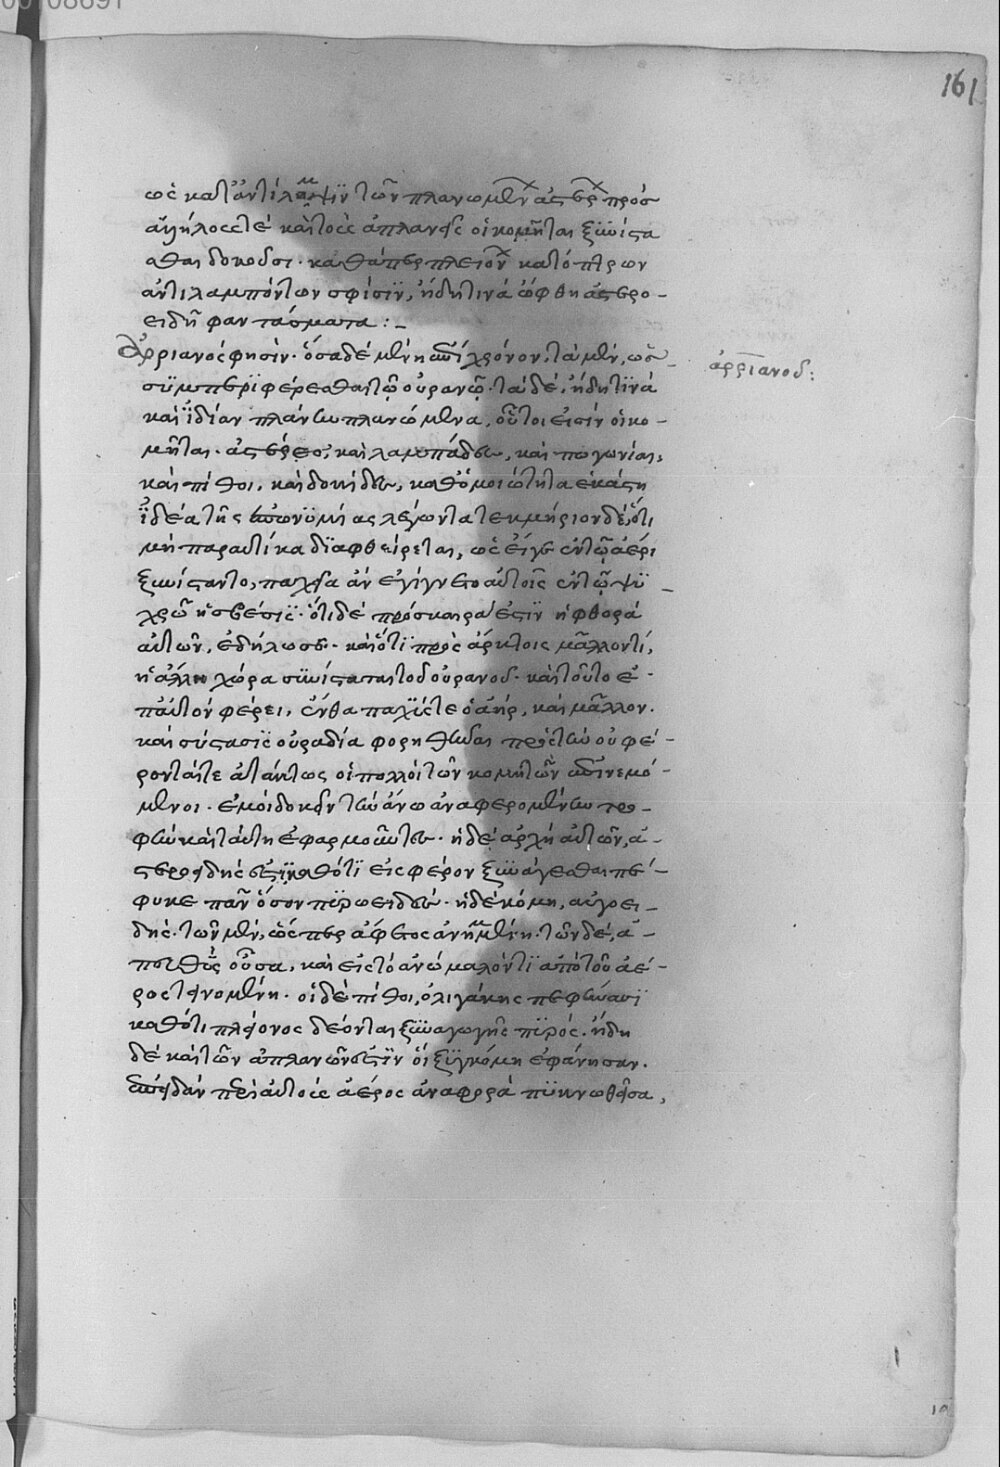 161
ὡς κατ' ἀντίλαμψιν τῶν πλανωμένων ἀστέρων πρός
ἀλλήλους τέ καὶ τοὺς ἀπλανεῖς οἱ κομῆται ξυνίστα
σθαι δοκοῦσι. καθάπερ πλειόνων κατόπτρων
ἀντιλαμπόντων σφίσιν, ἤδη τινά ὤφθη ἀστερο-
ειδῆ φαντάσματα :-
Ἀρριανός φησὶν. ὅσα δὲ μένη ἐπὶ χρόνον, τὰ μὲν, ὡς
συμπεριφέρεσθαι τῷ οὐρανῷ. τὰ δέ, ἤδη τινά
καὶ ἰδίαν πλάνην πλανώμενα, οὗτοι εἰσὶν οἱ κο-
μῆται. ἀστέρες, καὶ λαμπάδες, καὶ πωγωνίαι,
καὶ πίθοι, καὶ δοκίδες, καθ' ὁμοιότητα ἑκάστη
ἰδέα τῆς ἐπωνυμίας λέγονται τεκμήριον δὲ, ὅτι
μὴ παραυτίκα διαφθείρεται, ὡς εἴγε ἐν τῷ ἀέρι
ξυνίσταντο, παχεῖα ἂν ἐγίγνετο αὐτοῖς ἐν τῷ ψυ-
χρῷ ἡ σβέσις. ὅτι δὲ πρόσκαιρα ἐστὶν ἡ φθορά
αὐτῶν, ἐδήλωσε. καὶ ὅτι πρὸς ἄρκτοις μᾶλλον τί,
ἡ ἄλλη χώρα συνίσταται τοῦ οὐρανοῦ. καὶ τοῦτο ἐ-
παυτὸν φέρει, ἔνθα παχύς τε ὁ ἀήρ, καὶ μᾶλλον.
καὶ σύστασις οὐ ραδία φορηθῆναι πρὸς τὴν οὐ φέ-
ρονταί τε ἀτάκτως οἱ πολλοὶ τῶν κομητῶν ἐπινεμό-
μενοι. ἐμοὶ δοκεῖν τὴν ἄνω ἀναφερομένην τρο-
φὴν καὶ ταύτη ἐφαρμοῦντες. ἡ δὲ ἀρχὴ αὐτῶν, ἀ-
στεροειδής ἐστιν καθότι εἰσφέρον ξυνάγεσθαι πέ-
φυκε πᾶν ὅσον πυρωειδές. ἡ δὲ κόμη, αὐγοει-
δής. τῶν μὲν, ὥσπερ ἄφετος ἀνημμένη. τῶν δέ, ἀ-
ποταθεῖσα, καὶ εἰς τὸ ἀνώμαλόν τι ἀπὸ τοῦ ἀέ-
ρος τεινομένη. οἱ δὲ πίθοι, ὀλιγάκις πεφήνασι
καθότι πλείονος δέονται ξυναγωγῆς πυρός. ἤδη
δὲ καὶ τῶν ἀπλανῶν ἐστὶν οἳ ξὺν κόμη ἐφάνησαν.
ἐπειδὰν περὶ αὐτοὺς ἀέρος ἀναφορὰ πυκνωθεῖσα,
ἀρριανοῦ: